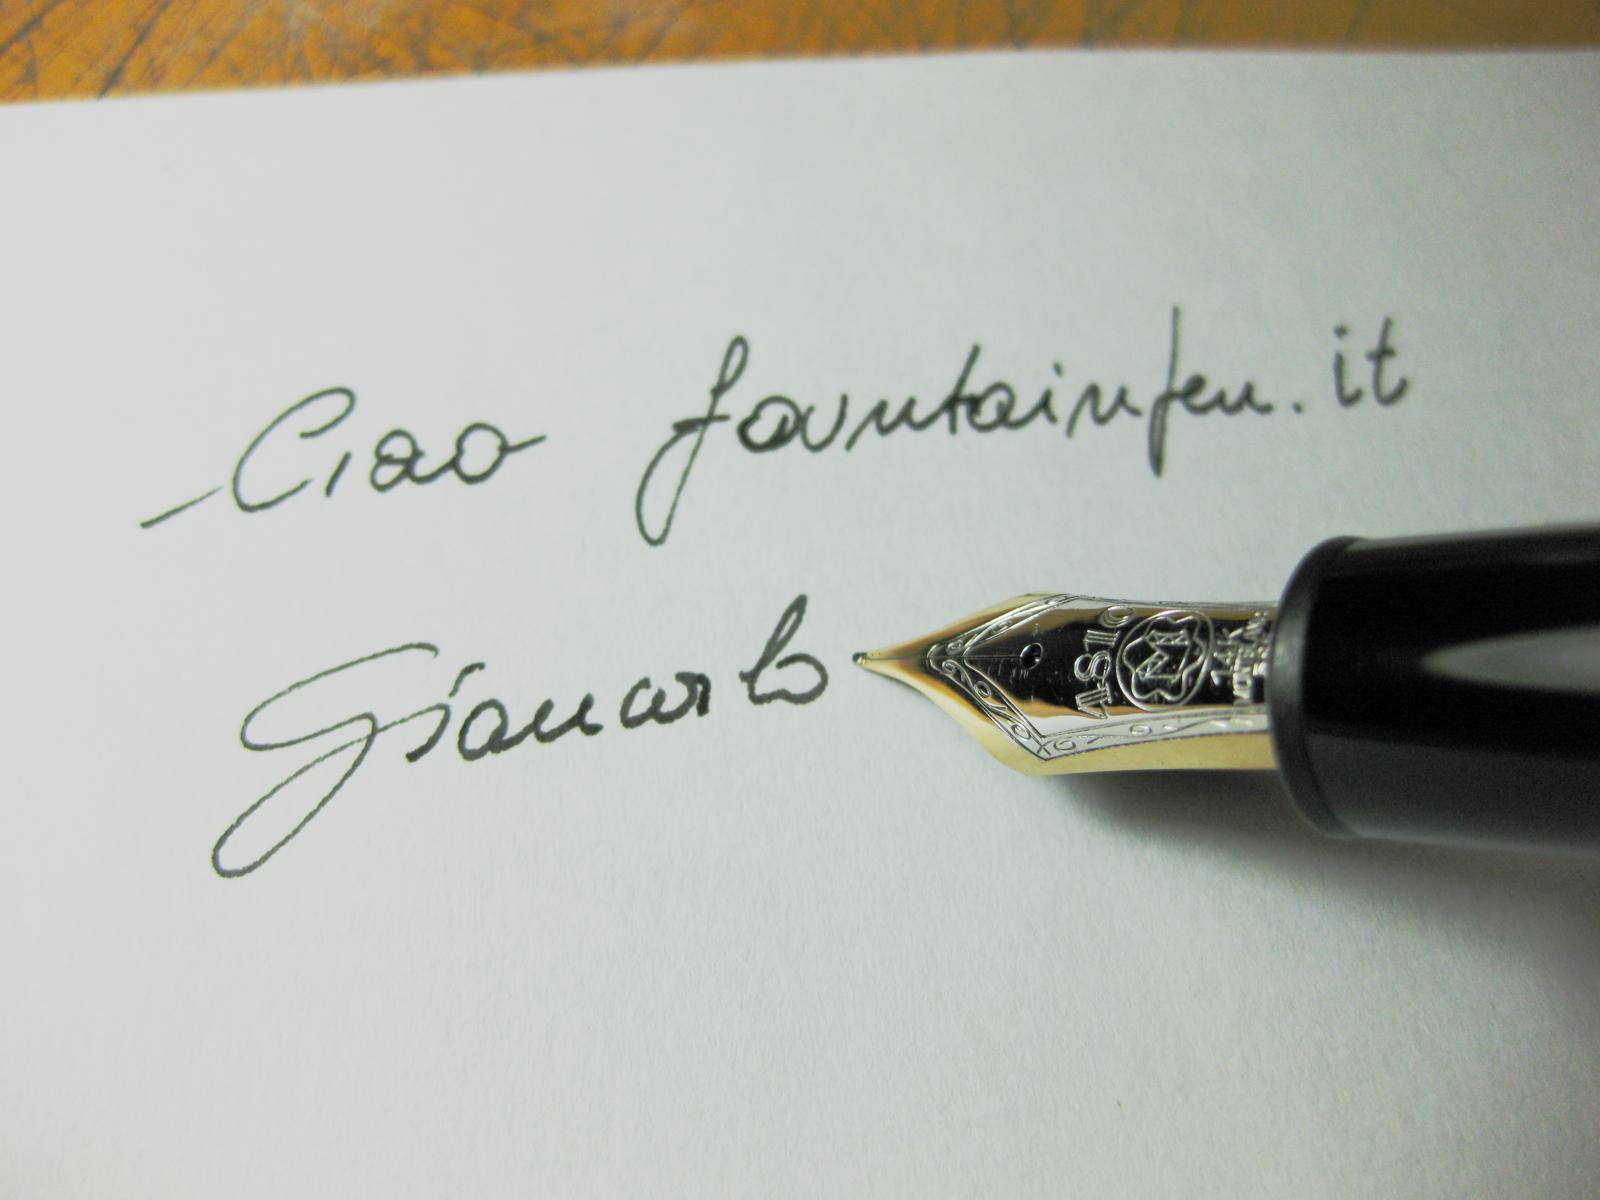 Ciao fountainpen.it
Giancarlo
4810
M
14K